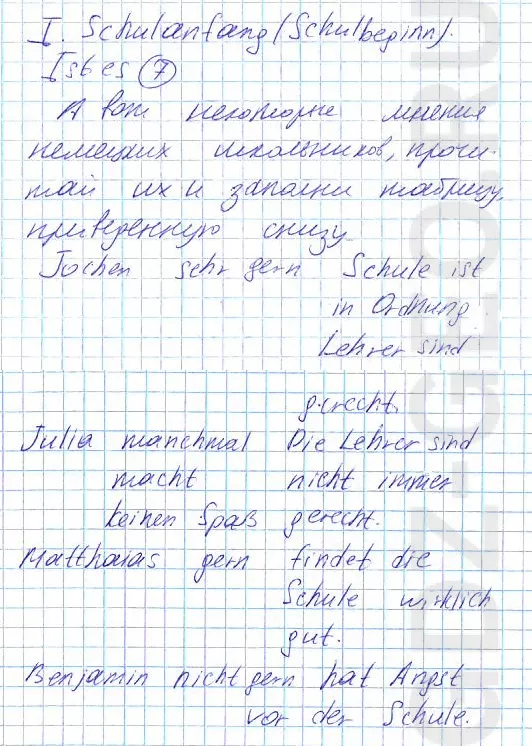 I. Schulanfang (Schulbeginn).
Ist es 7
А вот некоторые мнения
немецких школьников, прочи-
тай их и заполни таблицу,
приведенную снизу
Jochen sehr gern Schule ist
in Ordnung
Lehrer sind
gerecht.
Julia manchmal Die Lehrer sind
macht nicht immer
keinen Spaß gerecht.
Matthaias gern findet die
Schule wirklich
gut.
Benjamin nicht gern hat Angst
vor der Schule.
GDZ-GEO.RU